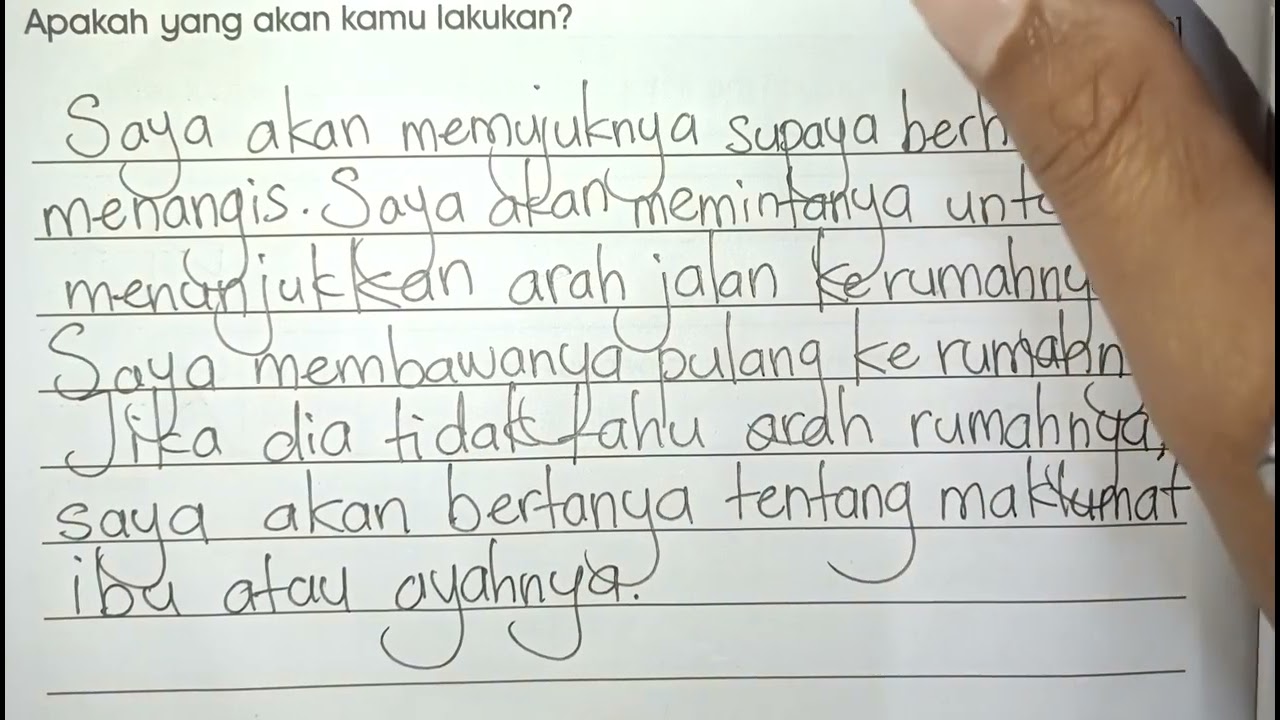 Apakah yang akan kamu lakukan?
Saya akan memujuknya supaya berh
menangis. Saya akan memintanya unt
menunjukkan arah jalan kerumahny
Saya membawanya pulang ke rumahn
Jika dia tidak tahu arah rumahnya,
saya akan bertanya tentang maklumat
ibu atau ayahnya.